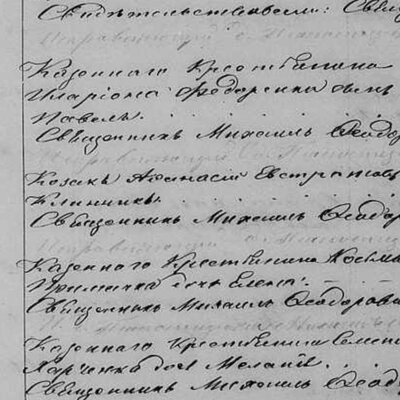 Свидѣтельствовали: Свящ
Казеннаго Крестьянина
Иларіона Федоренка сынъ
Павелъ.
Священникъ Михаилъ Ѳеодор
Козакъ Афанасій Евстратовъ
Священникъ Михаилъ Ѳеодор
Казеннаго Крестьянина Косьма
дочь Елена.
Священникъ Михаилъ Ѳеодорови
Казеннаго Крестьянина Семен
Харченка дочь Меланія.
Священникъ Михаилъ Ѳеодор